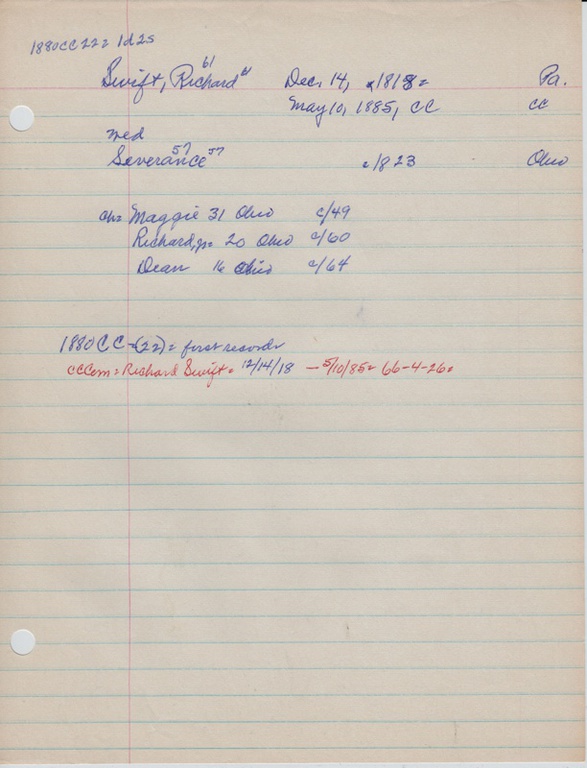 1880CC22= 1d2s
Swift, Richard 61 61 Dec. 14, c1818= Pa.
May 10, 1885, CC CC
wed
Severance 57 57 c/823 Ohio
ch= Maggie 31 Ohio c/49
Richard, jr= 20 Ohio c/60
Dean 16 Ohio c/64
1880CC-(22)= first records
CCCem= Richard Swift= 12/14/18 - 5/10/85= 66-4-26=